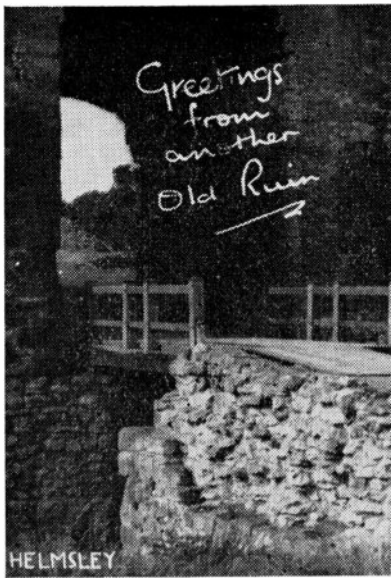 Greetings
from
another
Old Ruin
HELMSLEY